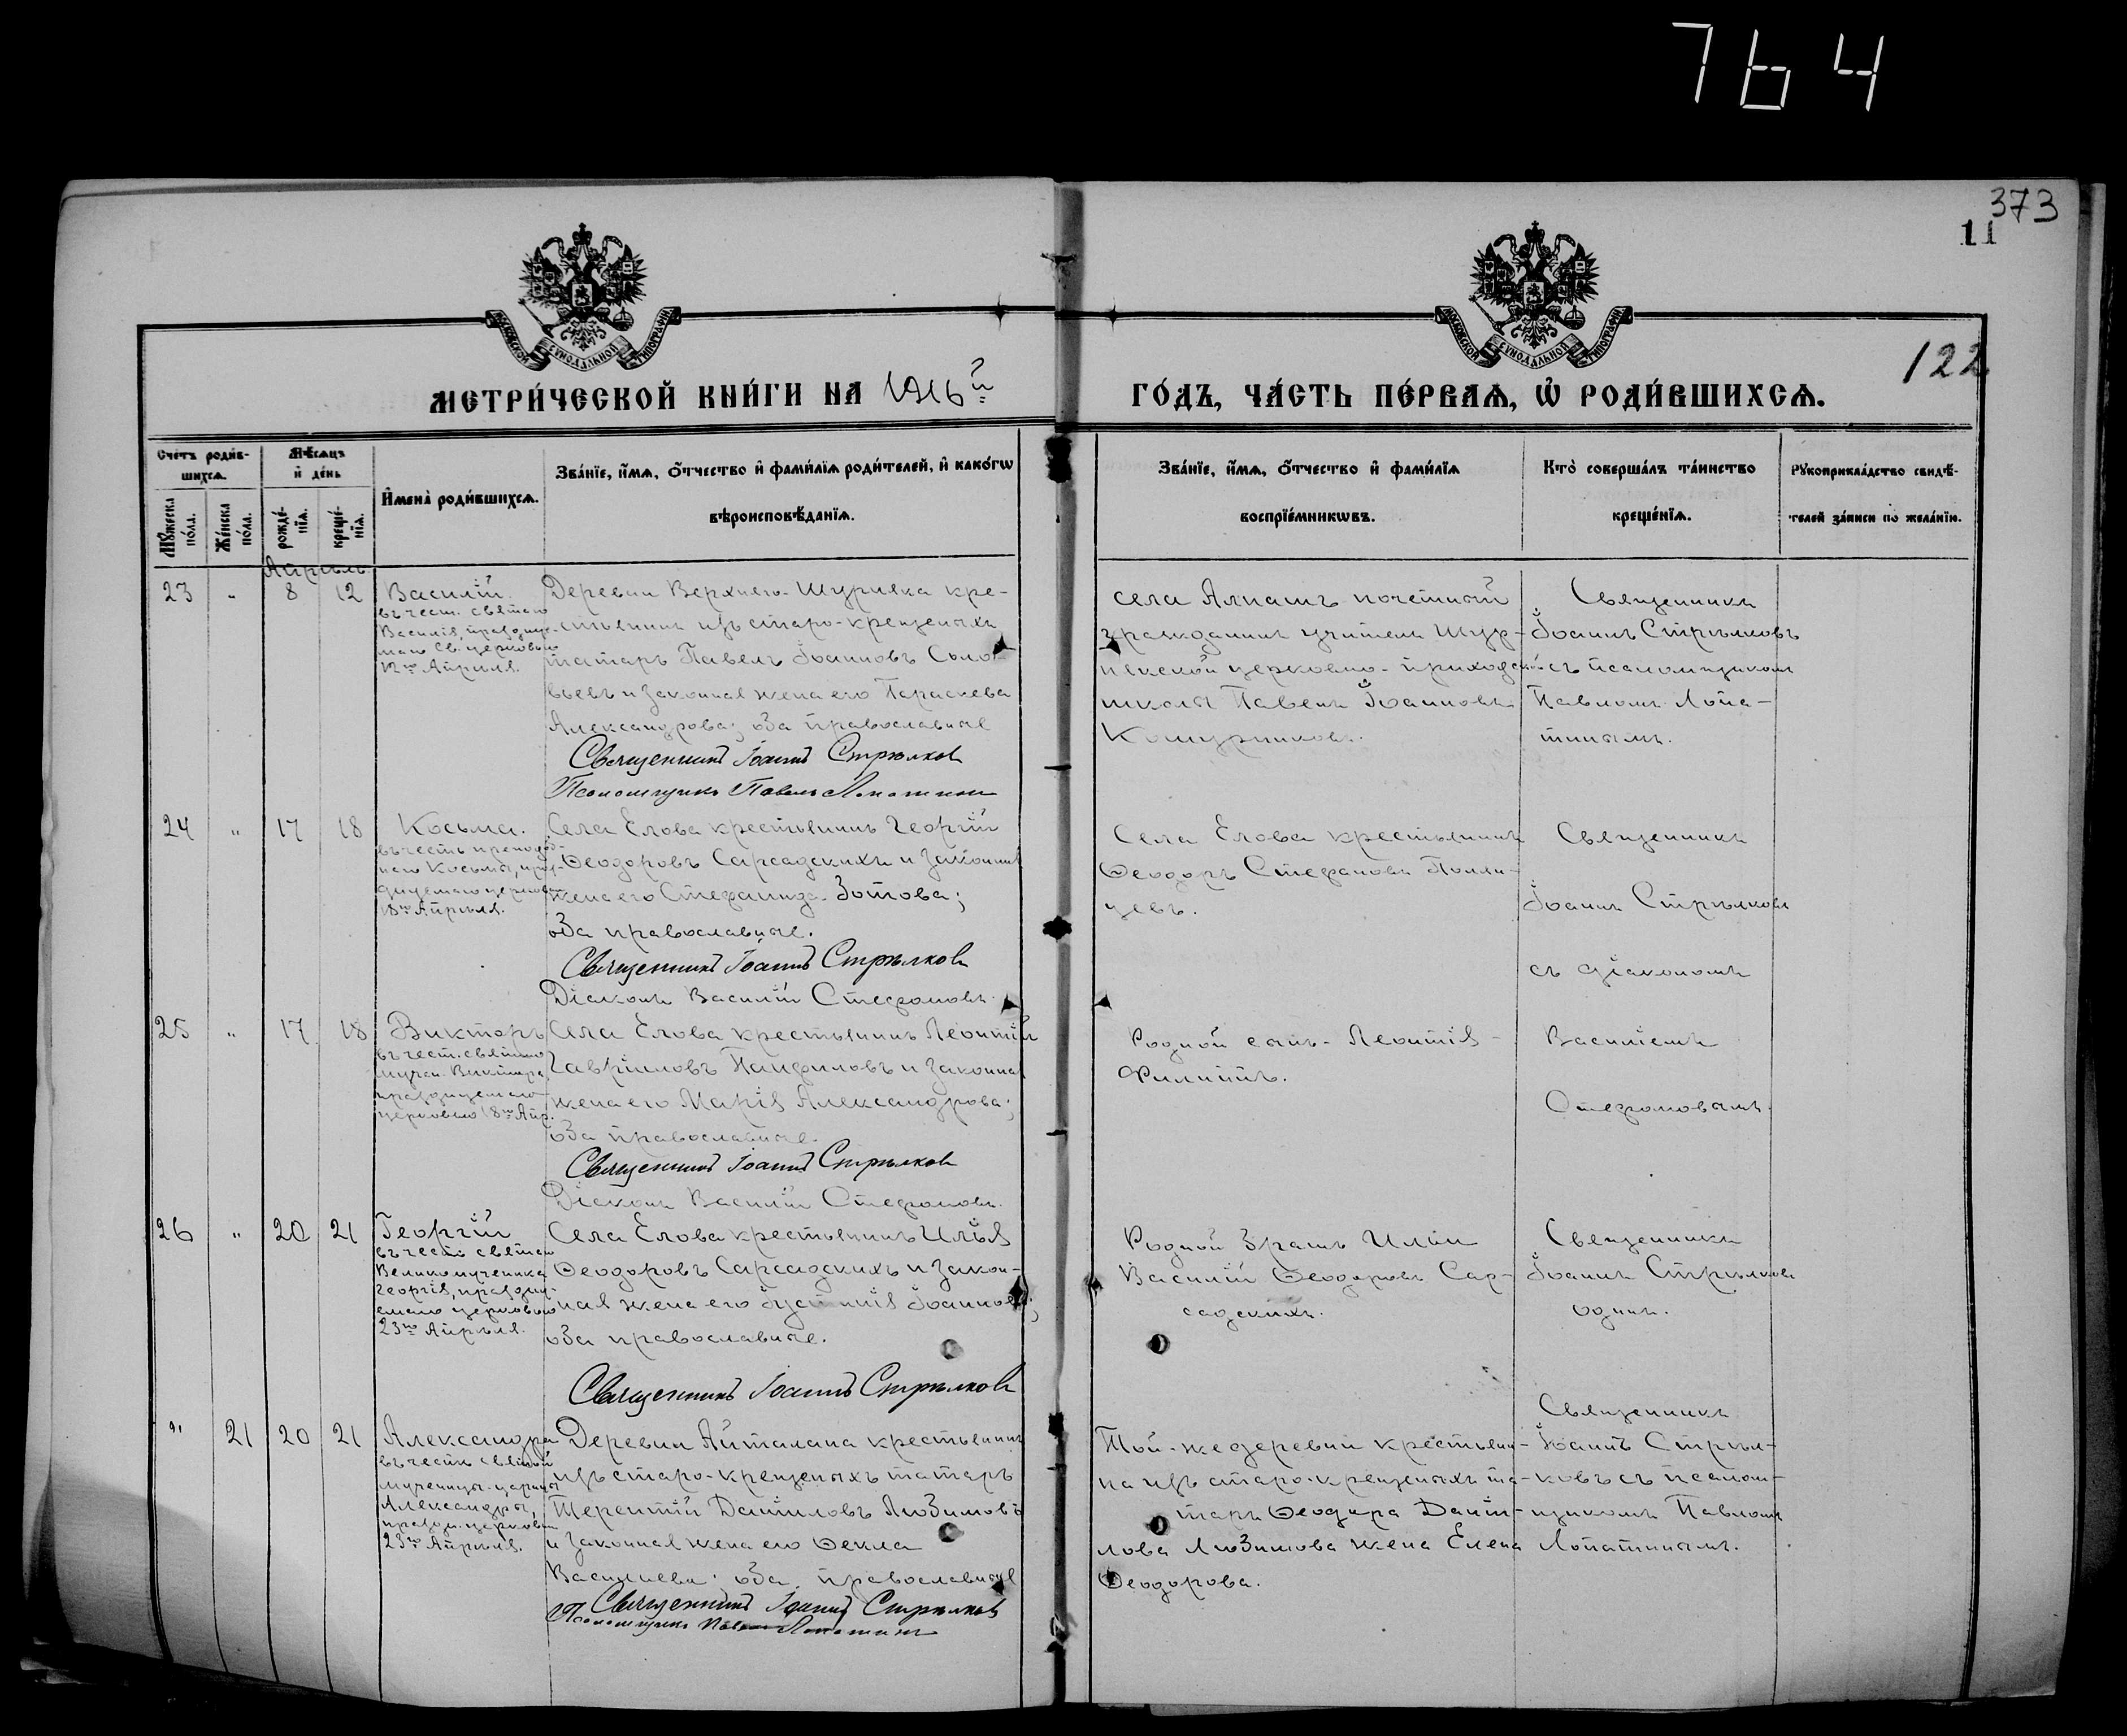 764
373
11
122
МОСКОВСКОЙ СѴНОДАЛЬНОЙ ТИПОГРАФІИ
МОСКОВСКОЙ СѴНОДАЛЬНОЙ ТИПОГРАФІИ
МЕТРИ́ЧЕСКОЙ КНИ́ГИ НА 1916й
ГО́ДЪ, ЧА́СТЬ ПЕ́РВАѦ, Ѡ҆ РОДИ́ВШИХСѦ.
Сче́тъ роди́в-
шихсѧ.
Мѣ́сѧцъ
и҆ де́нь
Мꙋ́жеска
по́ла.
Же́нска
по́ла.
рожде́-
нїѧ.
креще́-
нїѧ.
И҆мена̀ роди́вшихсѧ.
Зва́нїе, и҆́мѧ, ѻ҆́тчество и҆ фами́лїѧ роди́телей, и҆ како́гѡ
вѣроисповѣ́данїѧ.
Зва́нїе, и҆́мѧ, ѻ҆́тчество и҆ фами́лїѧ
воспрїе́мникѡвъ.
Кто̀ соверша́лъ та́инство
креще́нїѧ.
Рꙋкоприкла́дство свидѣ́-
телей за́писи по жела́нїю.
Апрѣль
23 " 8 12
Василій.
въ чест. святаго
Василія, праздну-
маго Св. церковью
12го Апрѣля.
Деревни Верхняго-Шуряка кре-
стьянинъ изъ старо-крещеныхъ
татаръ Павелъ Іоанновъ Соло-
вьевъ и законная жена его Параскева
Александрова; оба православные
Священникъ Іоаннъ Стрѣлковъ
Псаломщикъ Павелъ Лопатинъ
села Алнашъ почетный
гражданинъ учитель Шур-
някской церковно-приходской
школы Павелъ Іоанновъ
Кошурниковъ.
Священникъ
Іоаннъ Стрѣлковъ
съ псаломщикомъ
Павломъ Лопа-
тинымъ.
24 " 17 18
Косьма.
въ честь преподоб-
наго Косьмы, праз-
днуемаго церковью
18го Апрѣля.
Села Елова крестьянинъ Георгій
Ѳеодоровъ Сарсадскихъ и законная
жена его Стефанида Зотова;
оба православные.
Священникъ Іоаннъ Стрѣлковъ
Діаконъ Василій Стефановъ.
Села Елова крестьянинъ
Ѳеодоръ Стефановъ
цевъ.
Священникъ
Іоаннъ Стрѣлковъ
съ діакономъ
25 " 17 18
Викторъ
въ чест. святаго
мучен. Виктора,
празднуемаго
церковью 18го Апр.
Села Елова крестьянинъ Леонтій
Гавріиловъ Панфиловъ и законная
жена его Марія Александрова;
оба православные.
Священникъ Іоаннъ Стрѣлковъ
Діаконъ Василій Стефановъ.
Родной сынъ Леонтія -
Филиппъ.
Василіемъ
Стефановымъ.
26 " 20 21
Георгій
въ честь святаго
Великомученика
Георгія, праздну-
емаго церковью
23го Апрѣля.
Села Елова крестьянинъ Илья
Ѳеодоровъ Сарсадскихъ и закон-
ная жена его Іустинія Іоаннова;
оба православные.
Священникъ Іоаннъ Стрѣлковъ
Родной братъ Ильи
Василій Ѳеодоровъ Сар-
садскихъ.
Священникъ
Іоаннъ Стрѣлковъ
одинъ.
" 21 20 21
Александра
въ честь святой
мученицы-царицы
Александры,
праздн. церковью
23го Апрѣля.
Деревни Айталана крестьянинъ
изъ старо-крещеныхъ татаръ
Терентій Даніиловъ Любимовъ
и законная жена его Ѳекла
Васильева; оба православные
Священникъ Іоаннъ Стрѣлковъ
Псаломщикъ Павелъ Лопатинъ
Той-же деревни крестьяни-
на изъ старо-крещеныхъ та-
таръ Ѳеодора Даніи-
лова Любимова жена Елена
Ѳеодорова.
Священникъ
Іоаннъ Стрѣл-
ковъ съ псалом-
щикомъ Павломъ
Лопатинымъ.